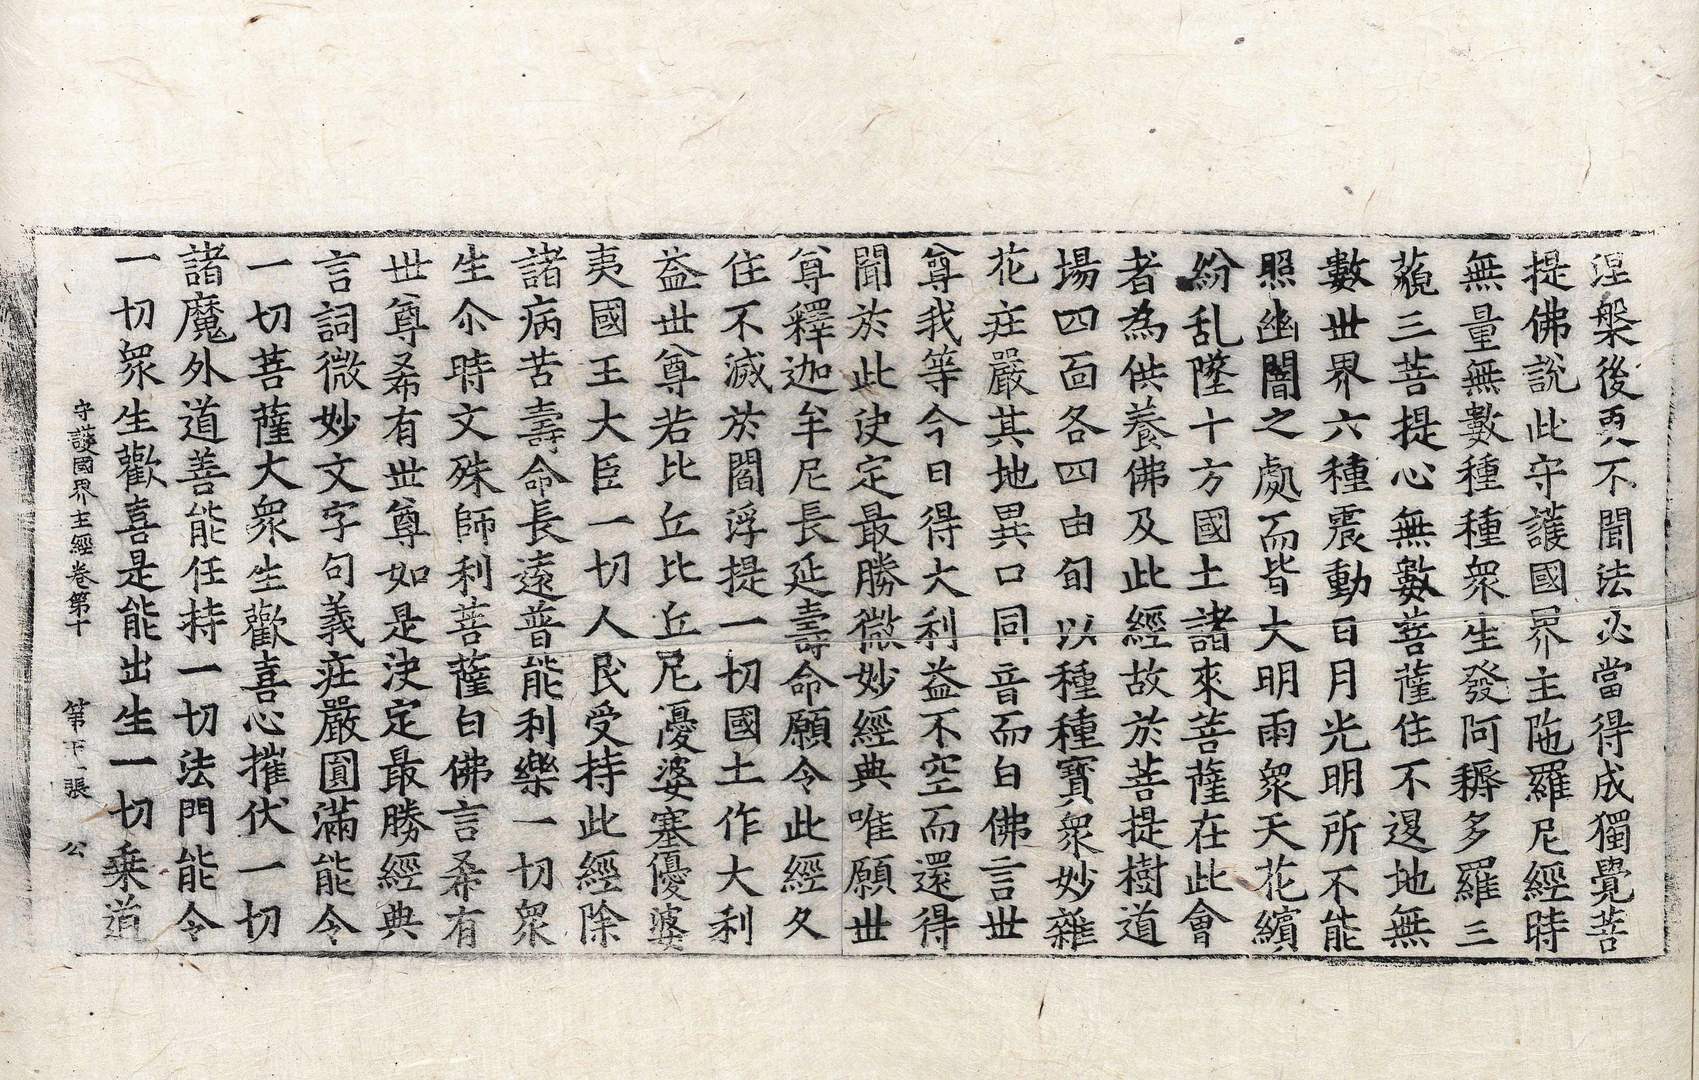 涅槃後更不聞法必當得成獨覺菩
提佛說此守護國界主陁羅尼經時
無量無數種種衆生發阿耨多羅三
藐三菩提心無數菩薩住不退地無
數世界六種震動日月光明所不能
照幽闇之處而皆大明雨衆天花繽
紛乱墜十方國土諸來菩薩在此會
者為供養佛及此經故於菩提樹道
場四面各四由旬以種種寶衆妙雜
花庄嚴其地異口同音而白佛言世
尊我等今日得大利益不空而還得
聞於此決定最勝微妙經典唯願世
尊釋迦牟尼長延壽命願令此經久
住不滅於閻浮提一切國土作大利
益世尊若比丘比丘尼優婆塞優婆
夷國王大臣一切人民受持此經除
諸病苦壽命長遠普能利樂一切衆
生尒時文殊師利菩薩白佛言希有
世尊希有世尊如是決定最勝經典
言詞微妙文字句義庄嚴圓滿能令
一切菩薩大衆生歡喜心摧伏一切
諸魔外道善能任持一切法門能令
一切衆生歡喜是能出生一切乗道
守護國界主經卷第十 第 一張 公